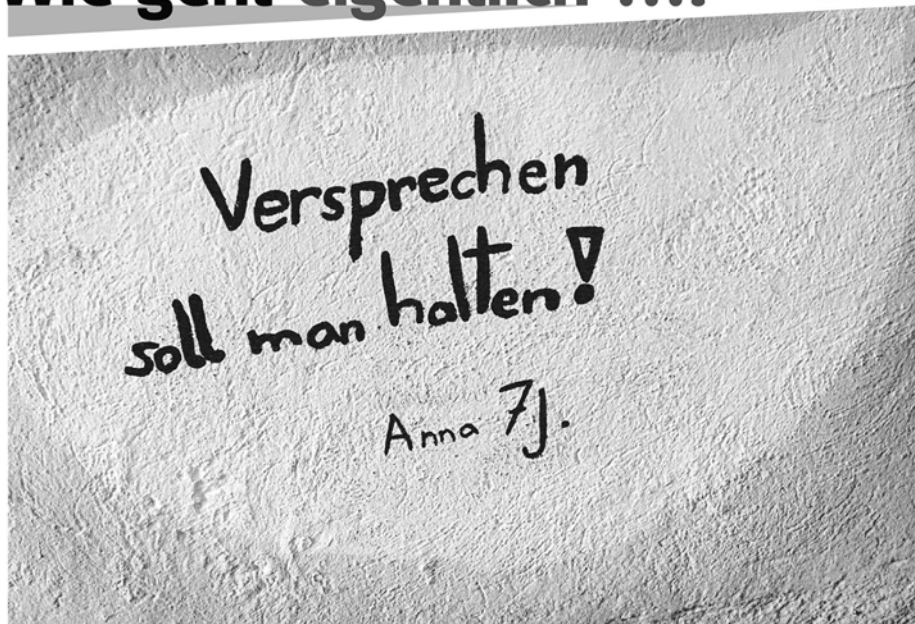 wie geht eigentlich ....
Versprechen
soll man halten!
Anna 7J.